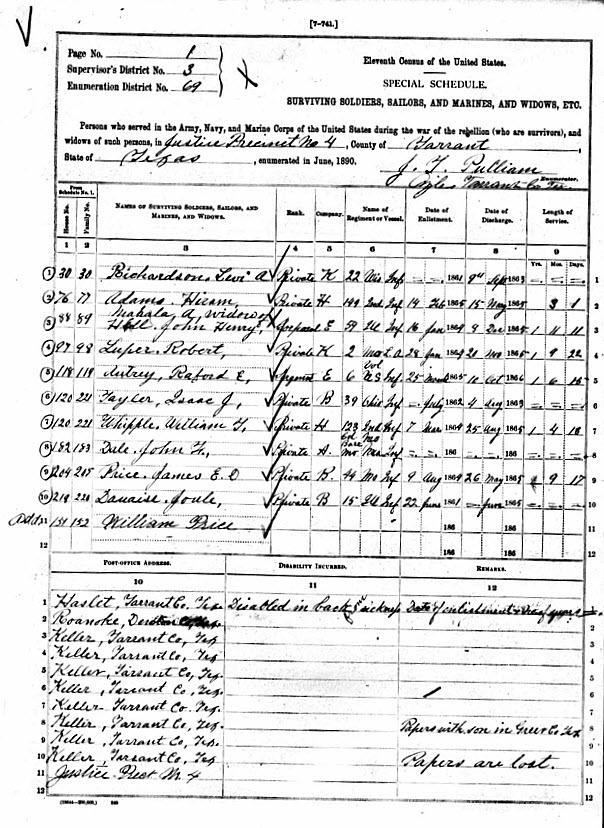 [7-741.]
Page No. 1
Supervisor's District No. 3
Enumeration District No. 69
Eleventh Census of the United States.
SPECIAL SCHEDULE.
SURVIVING SOLDIERS, SAILORS, AND MARINES, AND WIDOWS, ETC.
Persons who served in the Army, Navy, and Marine Corps of the United States during the war of the rebellion (who are survivors), and
widows of such persons, in Justice Precinct No 4, County of Tarrant,
State of Texas, enumerated in June, 1890.
J. T. Pulliam
Enumerator.
Tarrant Co Tex
From Schedule No. 1.
House No. Family No. NAMES OF SURVIVING SOLDIERS, SAILORS, AND MARINES, AND WIDOWS. Rank. Company. Name of Regiment or Vessel. Date of Enlistment. Date of Discharge. Length of Service.
Yrs. Mos. Days.
1 2 3 4 5 6 7 8 9
1 30 30 Richardson, Levi A Private K 22 Inf 1861 9 Sept 1863 1
2 76 77 Adams, Hiram, Private H 149 Ind Inf 14 Feb 1865 15 May 1865 3 1 2
Mahala A, widow of
3 88 89 Hill, John Henry, Corporal E 59 Ill Inf 16 Jan 1864 8 Dec 1865 1 11 3
4 97 98 Luper, Robert, Private K 2 Mo L. A. 28 Jan 1864 20 Nov 1865 1 9 22 4
5 118 119 Autrey, Raford E, Sergeant E 6 U.S Inf 25 March 1865 10 Oct 1866 1 6 15 5
6 120 221 Taylor, Isaac J, Private B 39 Ohio Inf July 1862 4 Aug 1863 6
7 120 221 Whipple, William T, Private H 123 Ind Inf 7 Mar 1864 25 Aug 1865 1 4 18 7
8 182 183 Dale, John F., Private A. Mo 8
9 204 205 Price, James E. D Private K. 44 Mo Inf 9 Aug 1864 26 May 1865 9 17 9
10 218 220 Danaise, Joule, Private B 15 Ill Inf 22 June 1861 June 186 10
11 151 152 William Price 186 186 11
12 186 186 12
POST-OFFICE ADDRESS. DISABILITY INCURRED. REMARKS.
10 11 12
1 Haslet, Tarrant Co, Tex Disabled in back & sickness Date of enlistment 1
2 Roanoke, Denton Co, Tex. 2
3 Keller, Tarrant Co, Tex 3
4 Keller, Tarrant Co, Tex. 4
5 Keller, Tarrant Co, Tex. 5
6 Keller, Tarrant Co, Tex. 6
7 Keller, Tarrant Co, Tex. 7
8 Keller, Tarrant Co, Tex. Papers with son in Greer Co Tex 8
9 Keller, Tarrant Co, Tex. 9
10 Keller, Tarrant Co, Tex Papers are lost. 10
11 Justice Prect No 4 11
12 12